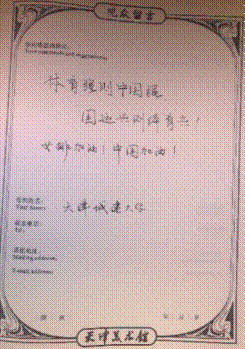 观众留言
您的感想和建议:
Your comments and suggestions:
体育强则中国强
国运兴则体育兴!
女排加油!中国加油!
您的姓名:
Your Name:
天津城建大学
联系电话:
Tel:
通信地址:
Mailing address:
E-mail address:
年 月 日
天津美术馆